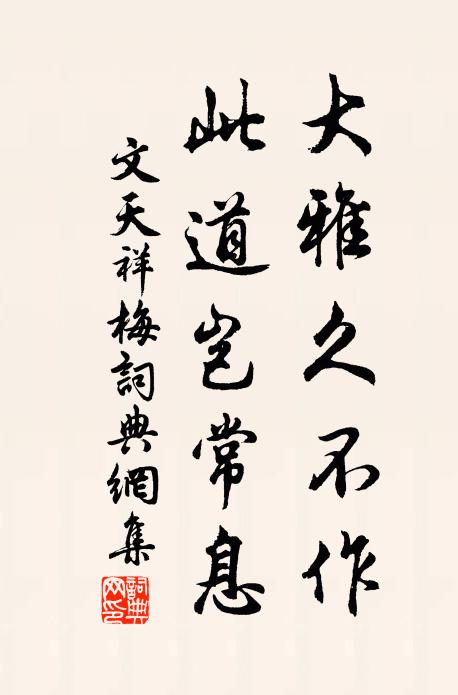 大雅久不作
此道岂常息
文天祥梅詞典網集
詞典網印